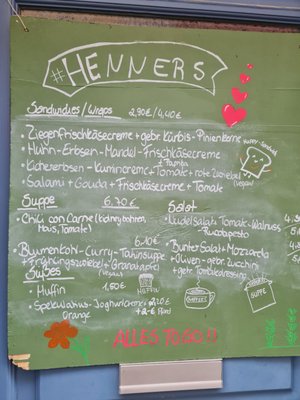 #HENNERS
Sandwiches / Wraps 2,90€/4,40€
• Ziegenfrischkäsecreme + gebr. Kürbis - Pinienkerne
• Huhn-Erbsen-Mandel-Frischkäsecreme
+ Paprika
• Kichererbsen-Kumincreme + Tomate + rote Zwiebel
(vegan)
• Salami + Gouda + Frischkäsecreme + Tomate
Happy-Sandwich
Suppe 6.70€
• Chili con Carne (Kidneybohnen,
Mais, Tomate)
6.10€
• Blumenkohl-Curry-Tahinsuppe
+ Frühlingszwiebel + Granatapfel
(vegan)
Salat
• Nudelsalat + Tomate-Walnuss
-Rucolapesto
• Bunter Salat + Mozzarella
+ Oliven + gebr. Zucchini
+ getr. Tomatendressing
Süßes
• Muffin 1,60€
• Spekulatius-Joghurtcreme 2,20€
Orange + 2€ Pfand
MUFFIN
SUPPE
ALLES TO GO!!